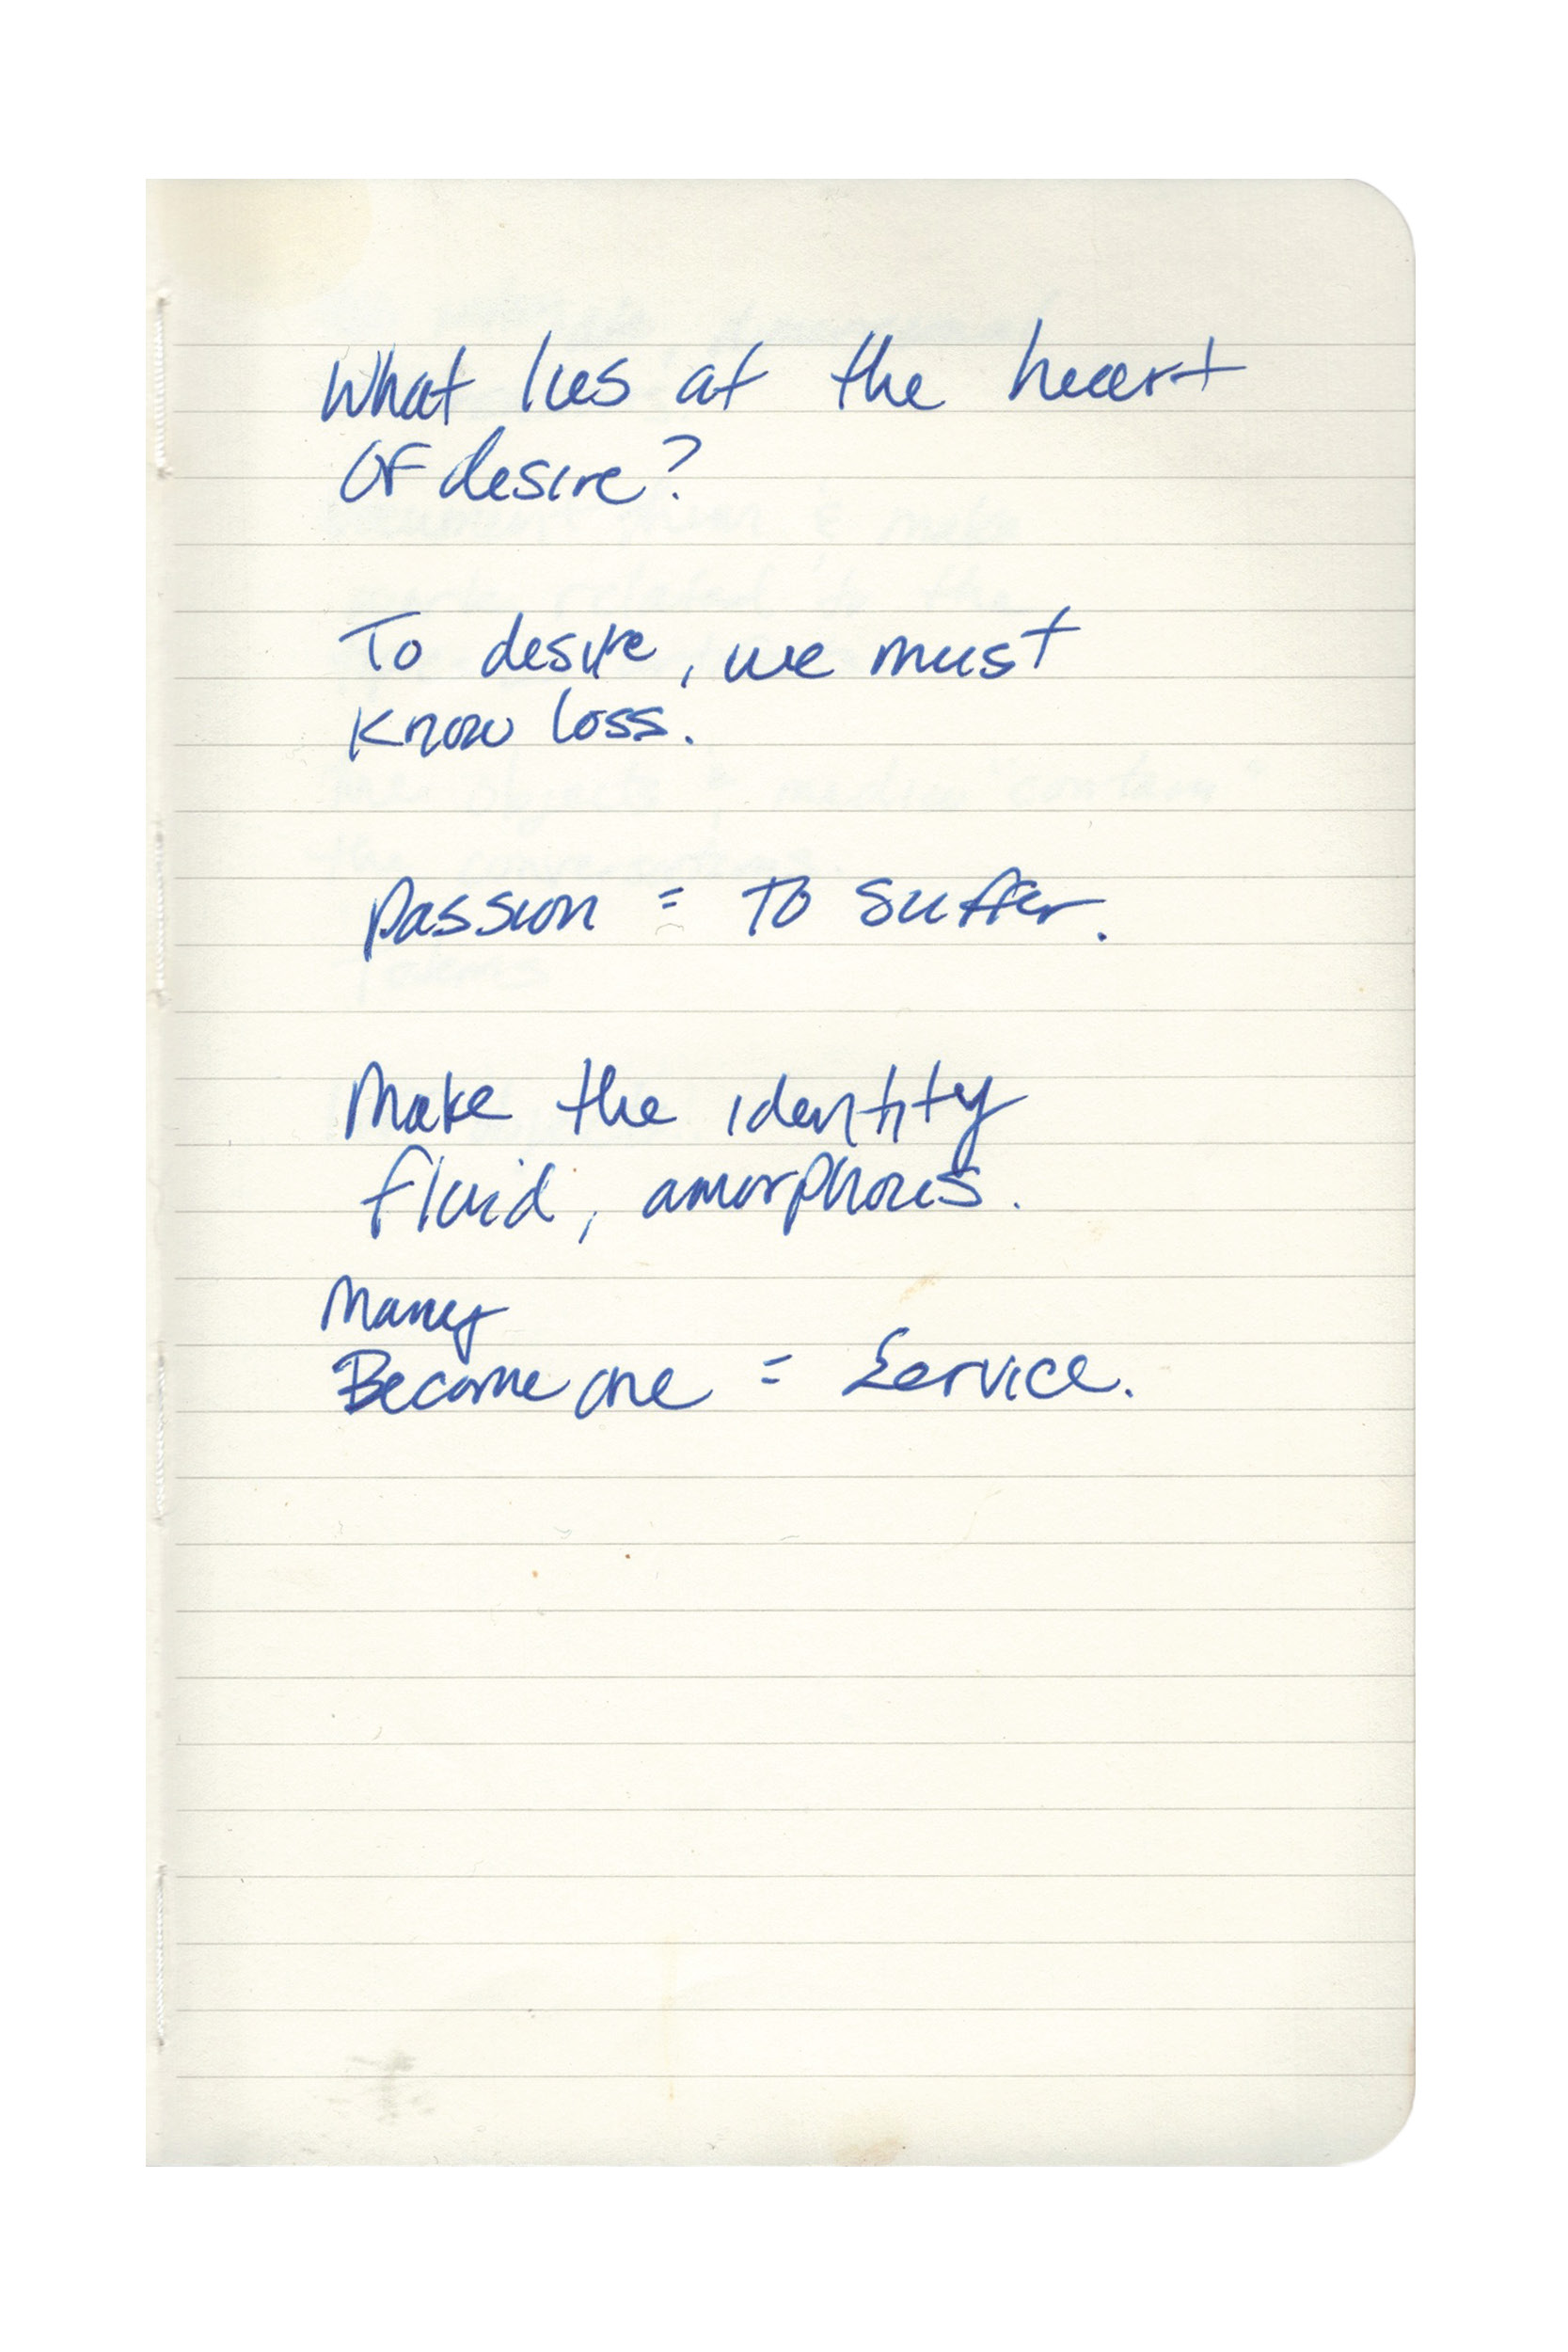 What lies at the heart
of desire?
To desire, we must
know loss.
passion = to suffer.
Make the identity
fluid, amorphous.
Many
Become one = Service.